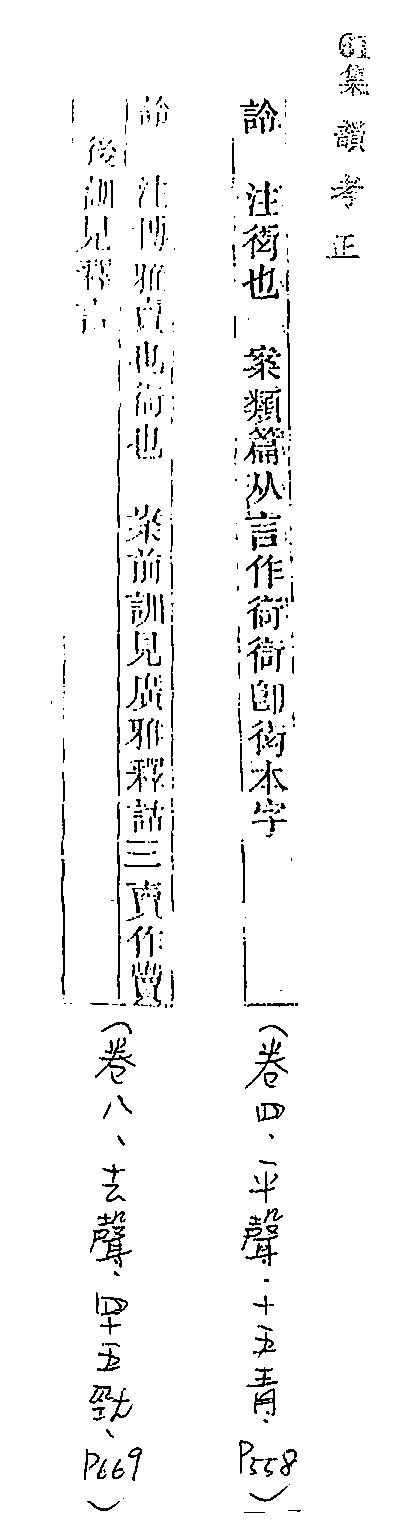 61集韻考正
詅　注衒也　案類篇从言作衒衒卽衒本字
（卷四、平聲．十五青．P558）
詅　注博雅賣也衒也　案前訓見廣雅釋詁三賣作𧶠
後訓見釋言
（卷八、去聲．四十五勁、P669）